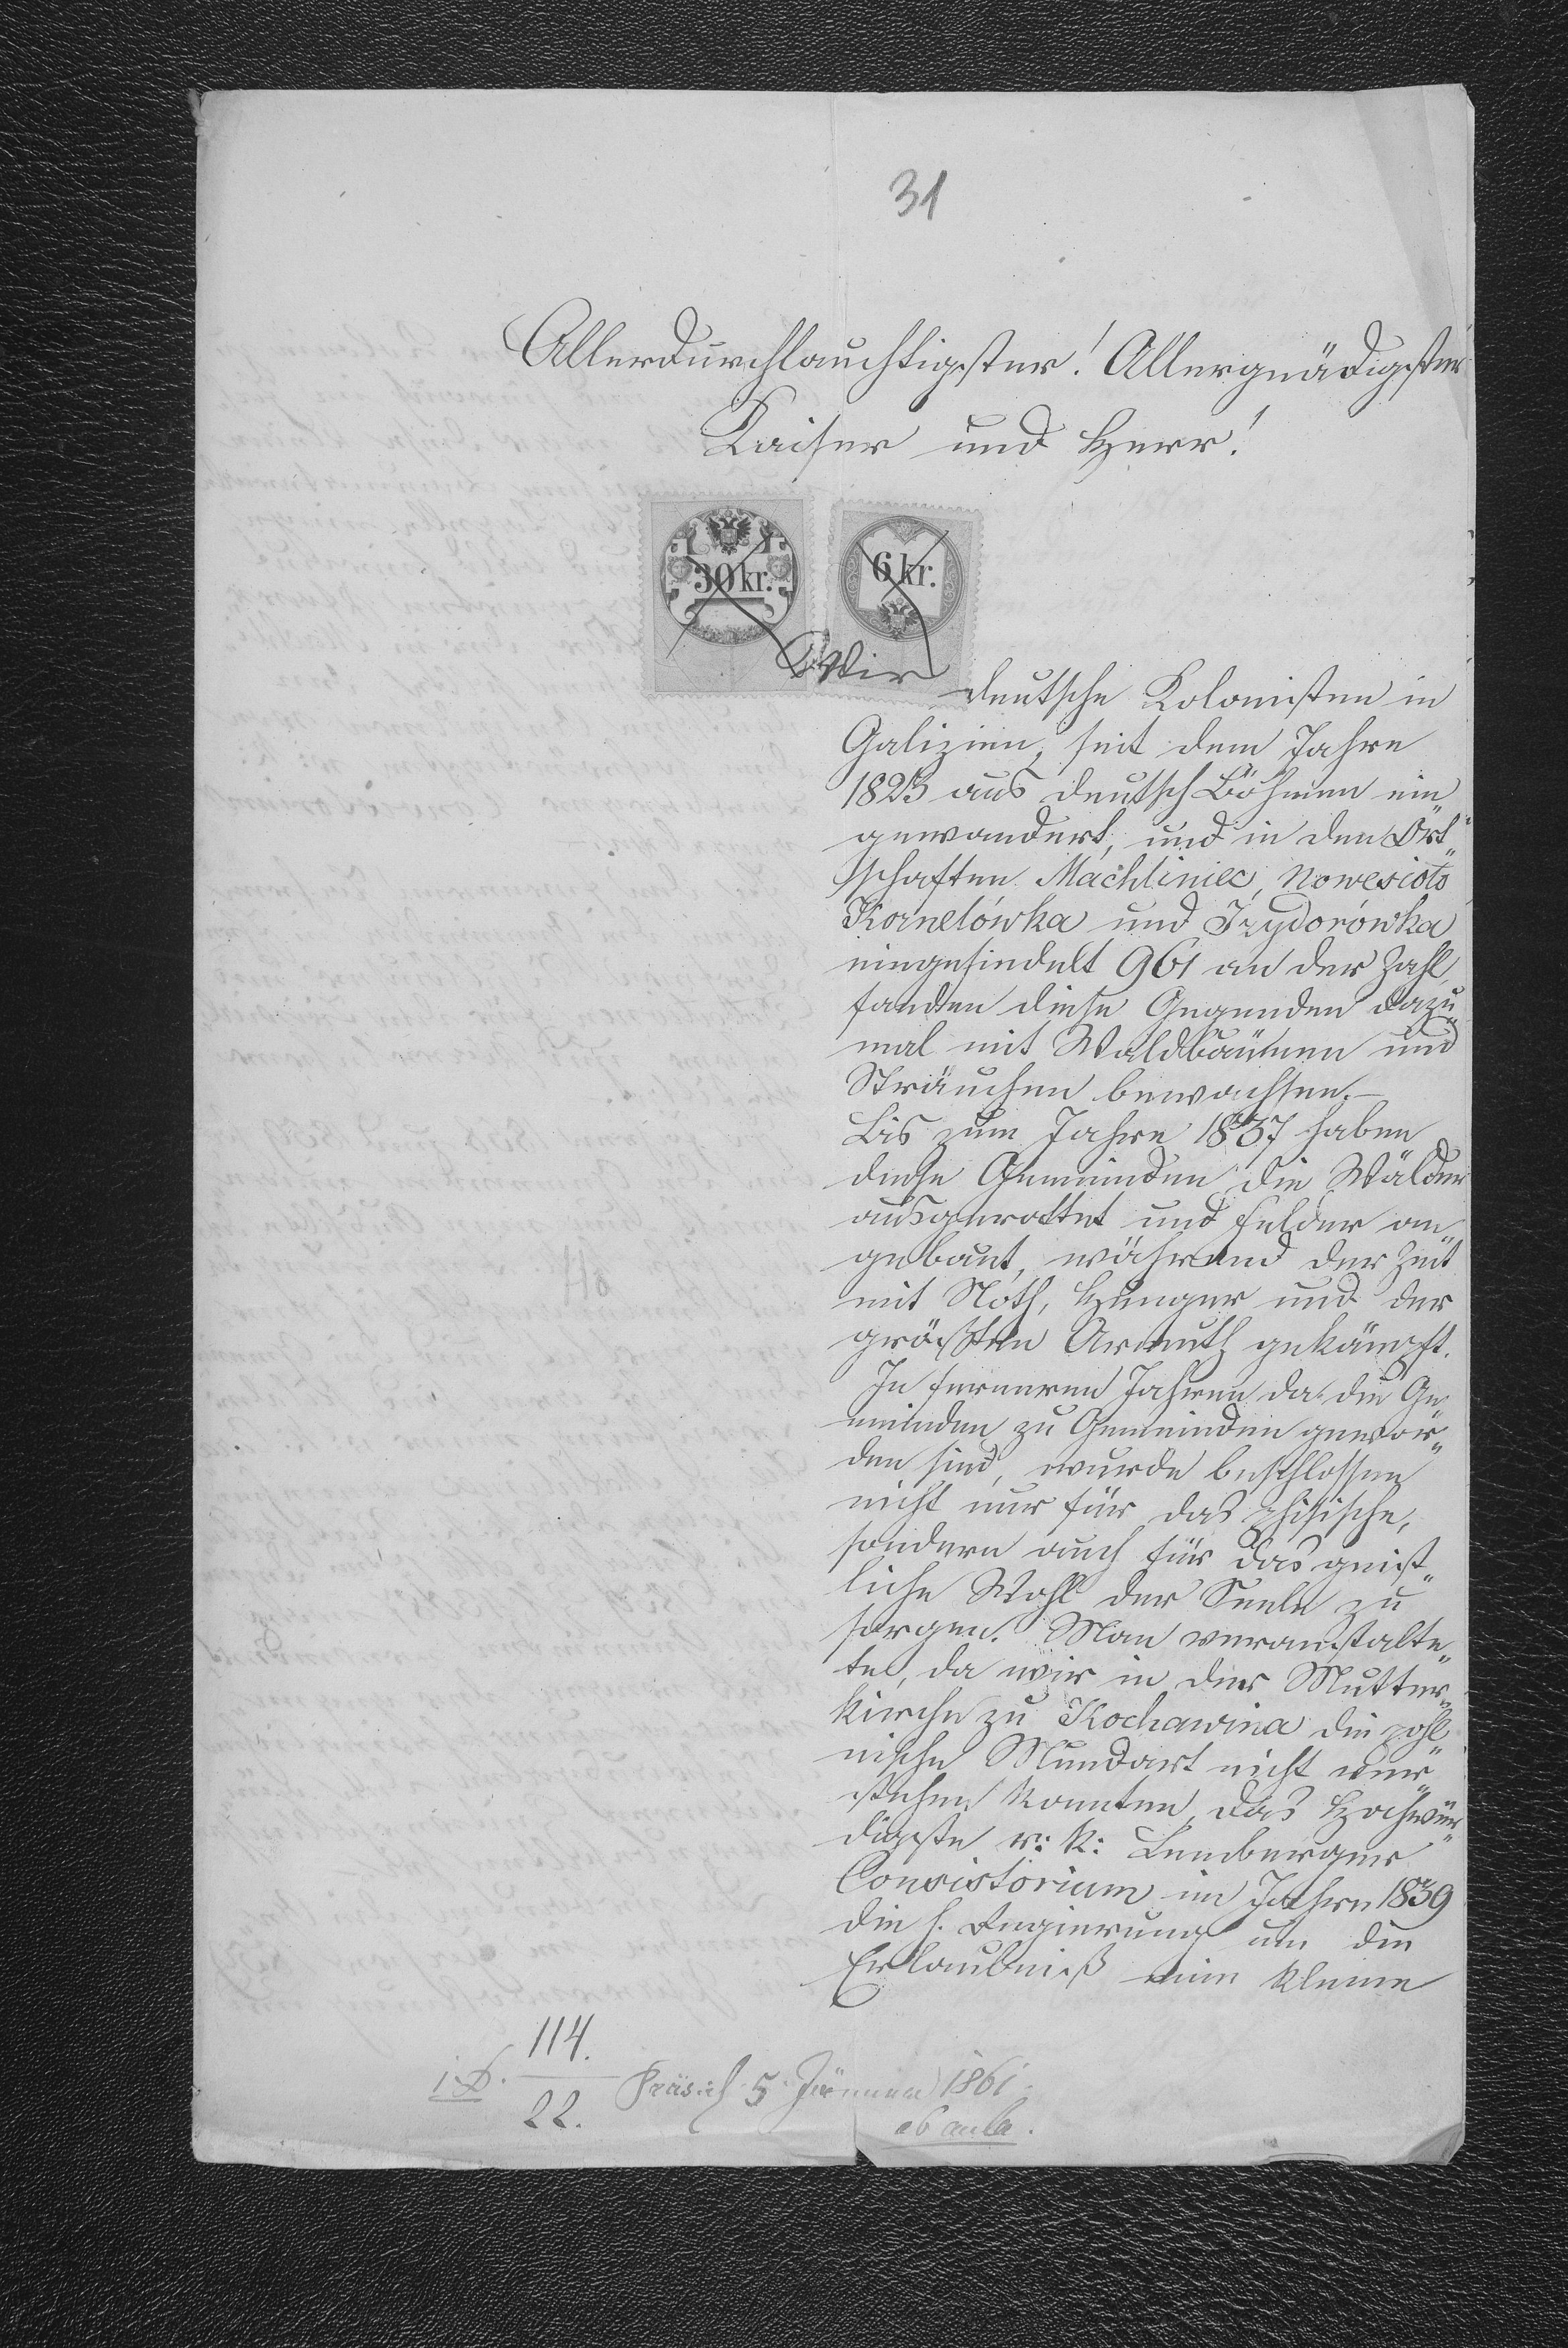 31
Allerdurchlauchtigster! Allergnädigster
Kaiser und Herr!
30 kr.
6 kr.
Wir
deutsche Kolonisten in
Galizien, seit dem Jahre
1823 aus deutsch Böhmen ein„
gewandert, und in den Ort„
schaften Machliniec, Nowesioło
Kornelówka und Izydorówka
eingesiedelt 961 an der Zahl,
fanden diese Gegenden dazu„
mal mit Waldbäumen und
Sträuchen bewachsen.–
Bis zum Jahre 1837 haben
diese Gemeinden die Wälder
ausgerottet und Felder an„
gebaut, während der Zeit
mit Noth, Hunger und der
größten Armuth gekämpft.
In ferneren Jahren da die Ge„
meinden zu Gemeinden gewor„
den sind, wurde beschlossen
nicht nur für das phisische,
sondern auch für das geist„
liche Wohl der Seele zu
sorgen. Man veranstalte„
te, da wir in der Mutter„
kirche zu Kochawina die pohl„
nische Mundart nicht ver„
stehen konnten, das Hochwür„
digste r: k: Lemberger
Consistorium im Jahre 1839
die h. Regierung um die
Erlaubniß eine kleine
114.
22.
Präs. 5 Jänner 1861